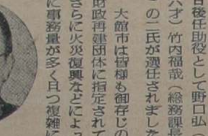 後任助役として野口弘（
六才）竹内福哉（総務課長
の二氏が選任されました
大館市は皆様も御存じの
財政再建団体に指定されて
さらに火災復興などによっ
に事務量が多く且つ複雑に